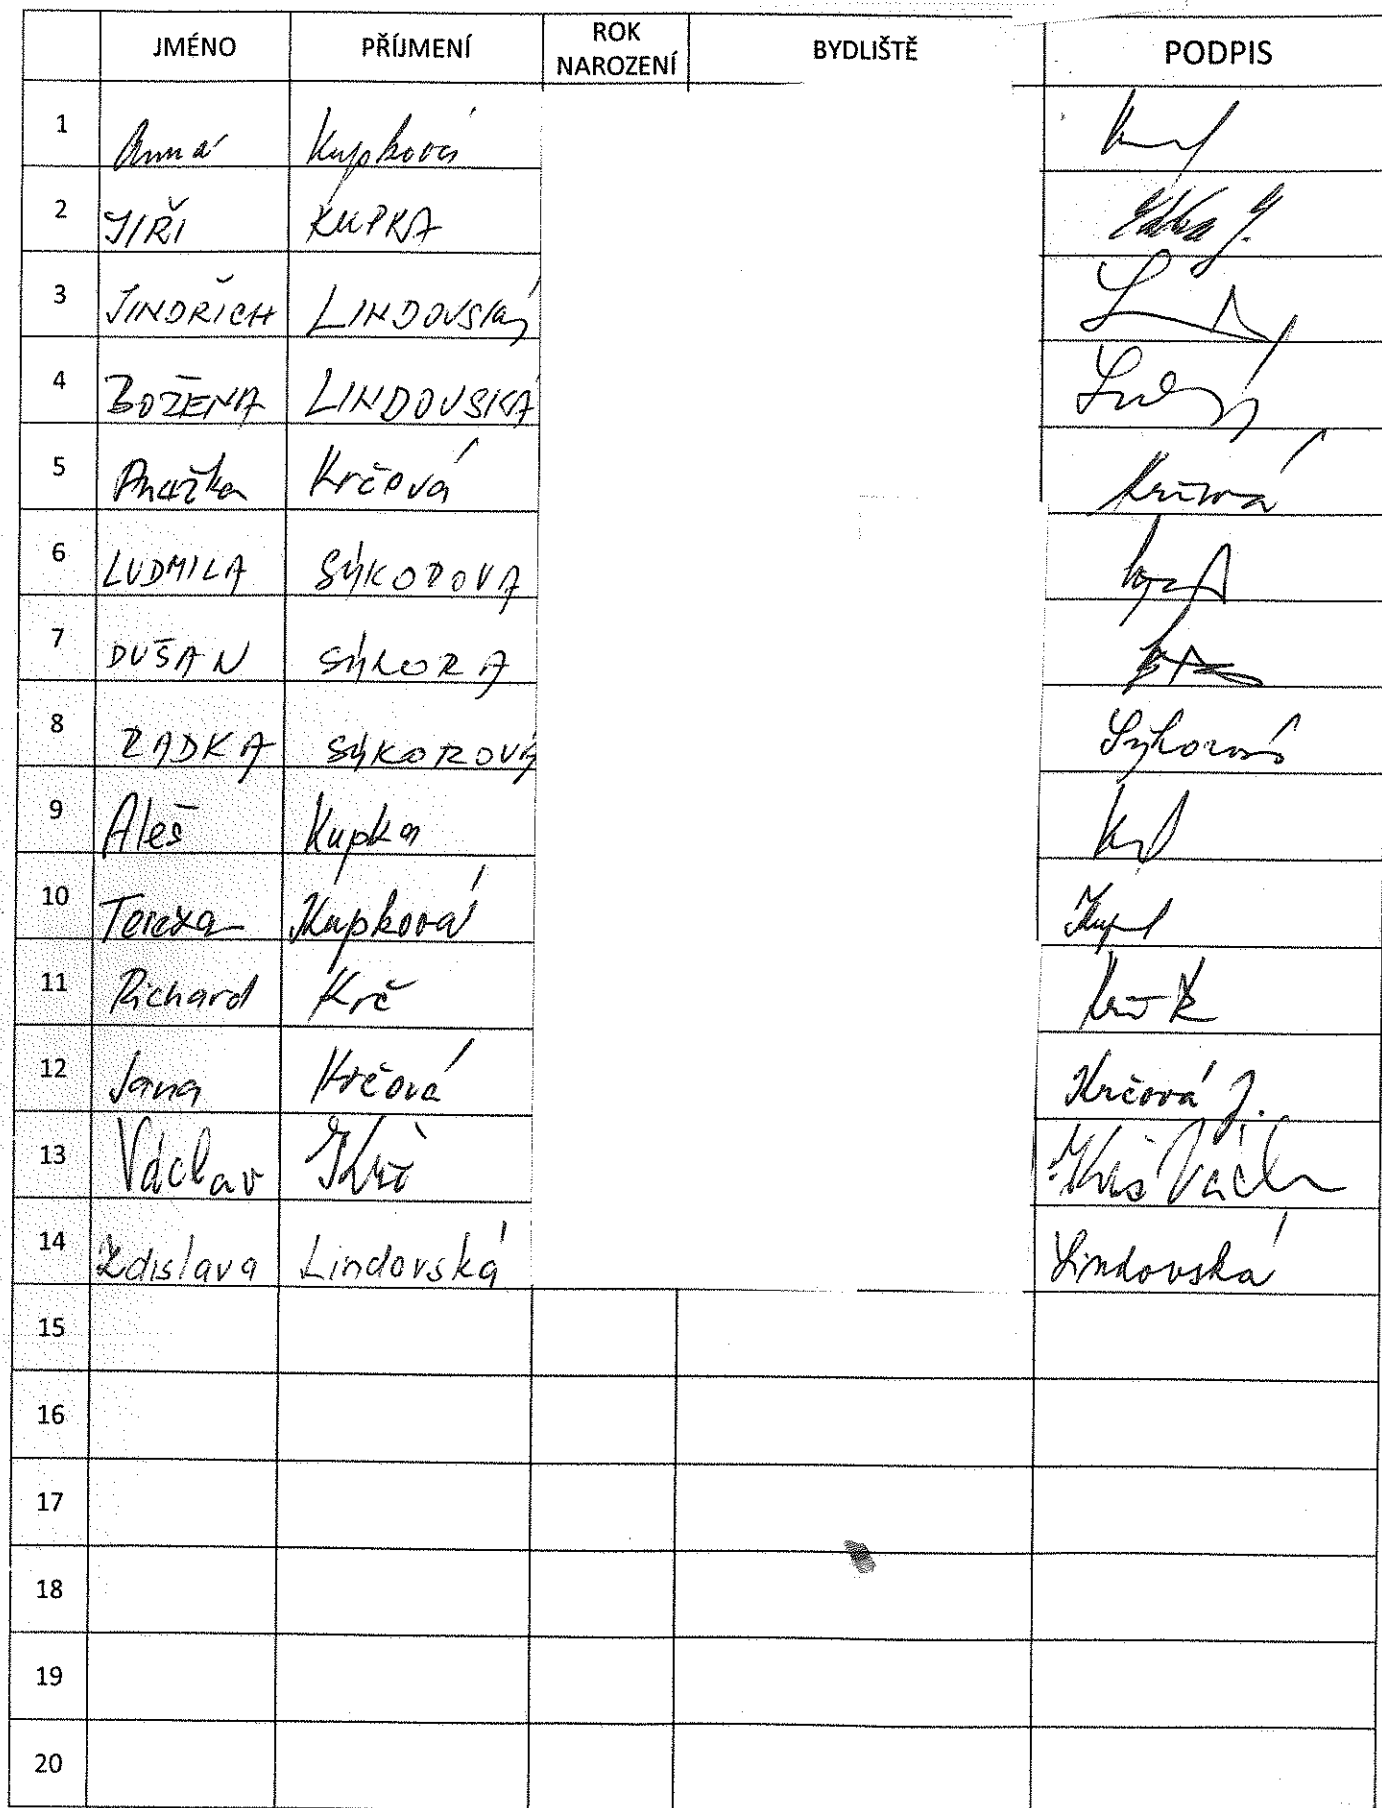 JMÉNO PŘÍJMENÍ ROK NAROZENÍ BYDLIŠTĚ PODPIS
1 Anna Kupková
2 JIŘÍ KUPKA
3 JINDŘICH LINDOVSKÝ
4 BOŽENA LINDOVSKÁ
5 Anežka Krčová Krčová
6 LUDMILA SÝKOROVA
7 DUŠAN SÝKORA
8 RADKA SÝKOROVÁ Sýkorová
9 Aleš Kupka
10 Tereza Kupková
11 Richard Krč
12 Jana Krčová Krčová J.
13 Václav Krč
14 Zdislava Lindovská Lindovská
15
16
17
18
19
20